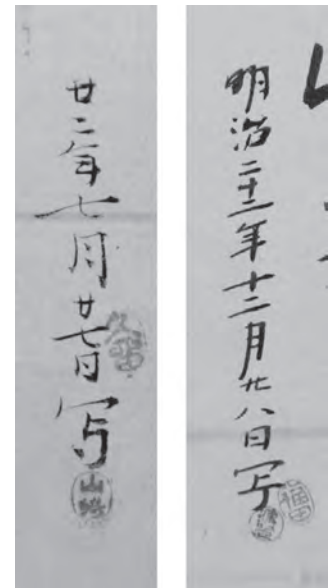 明治二十二年十二月廿八日写
廿二年七月廿七日写